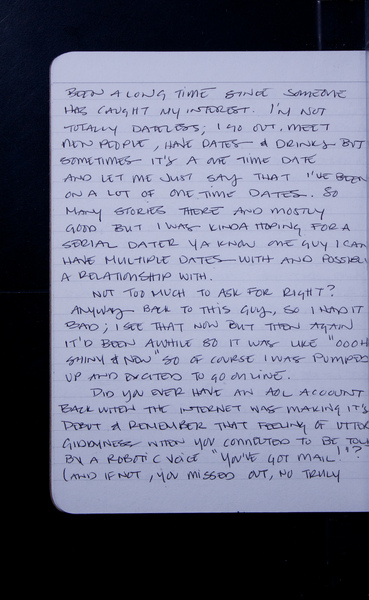 BEEN A LONG TIME SINCE SOMEONE
HAS CAUGHT MY INTEREST. I'M NOT
TOTALLY DATELESS; I GO OUT, MEET
NEW PEOPLE, HAVE DATES & DRINKS BUT
SOMETIMES IT'S A ONE TIME DATE
AND LET ME JUST SAY THAT I'VE BEEN
ON A LOT OF ONE TIME DATES. SO
MANY STORIES THERE AND MOSTLY
GOOD BUT I WAS KINDA HOPING FOR A
SERIAL DATER YA KNOW ONE GUY I CAN
HAVE MULTIPLE DATES WITH AND POSSIBLY
A RELATIONSHIP WITH.
NOT TOO MUCH TO ASK FOR RIGHT?
ANYWAY BACK TO THIS GUY, SO I HAD IT
BAD; I SEE THAT NOW BUT THEN AGAIN
IT'D BEEN AWHILE SO IT WAS LIKE "OOOH
SHINY & NEW" SO OF COURSE I WAS PUMPED
UP AND EXCITED TO GO ONLINE.
DID YOU EVER HAVE AN AOL ACCOUNT
BACK WHEN THE INTERNET WAS MAKING IT'S
DEBUT & REMEMBER THAT FEELING OF UTTER
GIDDYNESS WHEN YOU CONNECTED TO BE TOLD
BY A ROBOTIC VOICE "YOU'VE GOT MAIL!"?
(AND IF NOT, YOU MISSED OUT, NO TRULY